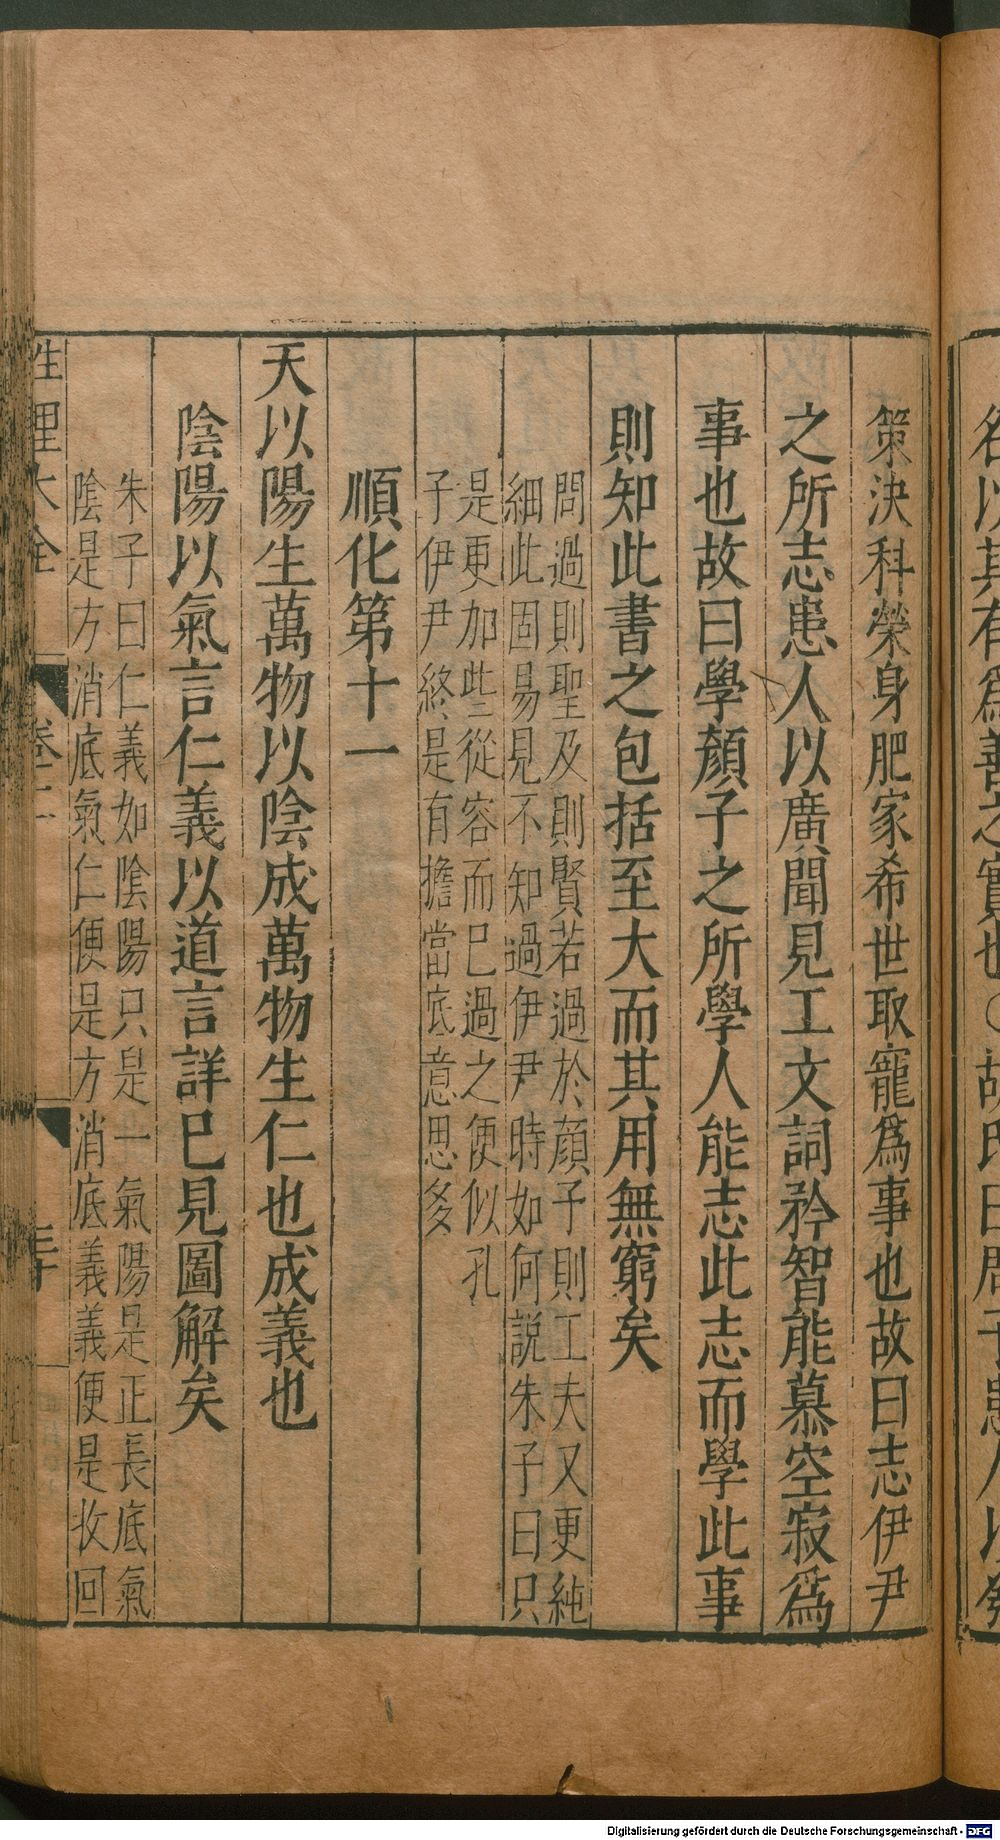 名以其有爲善之實也○胡氏曰周子患人以發
策決科榮身肥家希世取寵爲事也故曰志伊尹
之所志患人以廣聞見工文詞矜智能慕空寂爲
事也故曰學顏子之所學人能志此志而學此事
則知此書之包括至大而其用無窮矣
問過則聖及則賢若過於顔子則工夫又更純
細此固易見不知過伊尹時如何說朱子曰只
是更加些從容而巳過之便似孔
子伊尹終是有擔當底意思多
順化第十一
天以陽生萬物以陰成萬物生仁也成義也
陰陽以氣言仁義以道言詳巳見圖解矣
朱子曰仁義如隂陽只是一氣陽是正長底氣
隂是方消底氣仁便是方消底義義便是收回
性理大全 卷二 三十
Digitalisierung gefördert durch die Deutsche Forschungsgemeinschaft - DFG